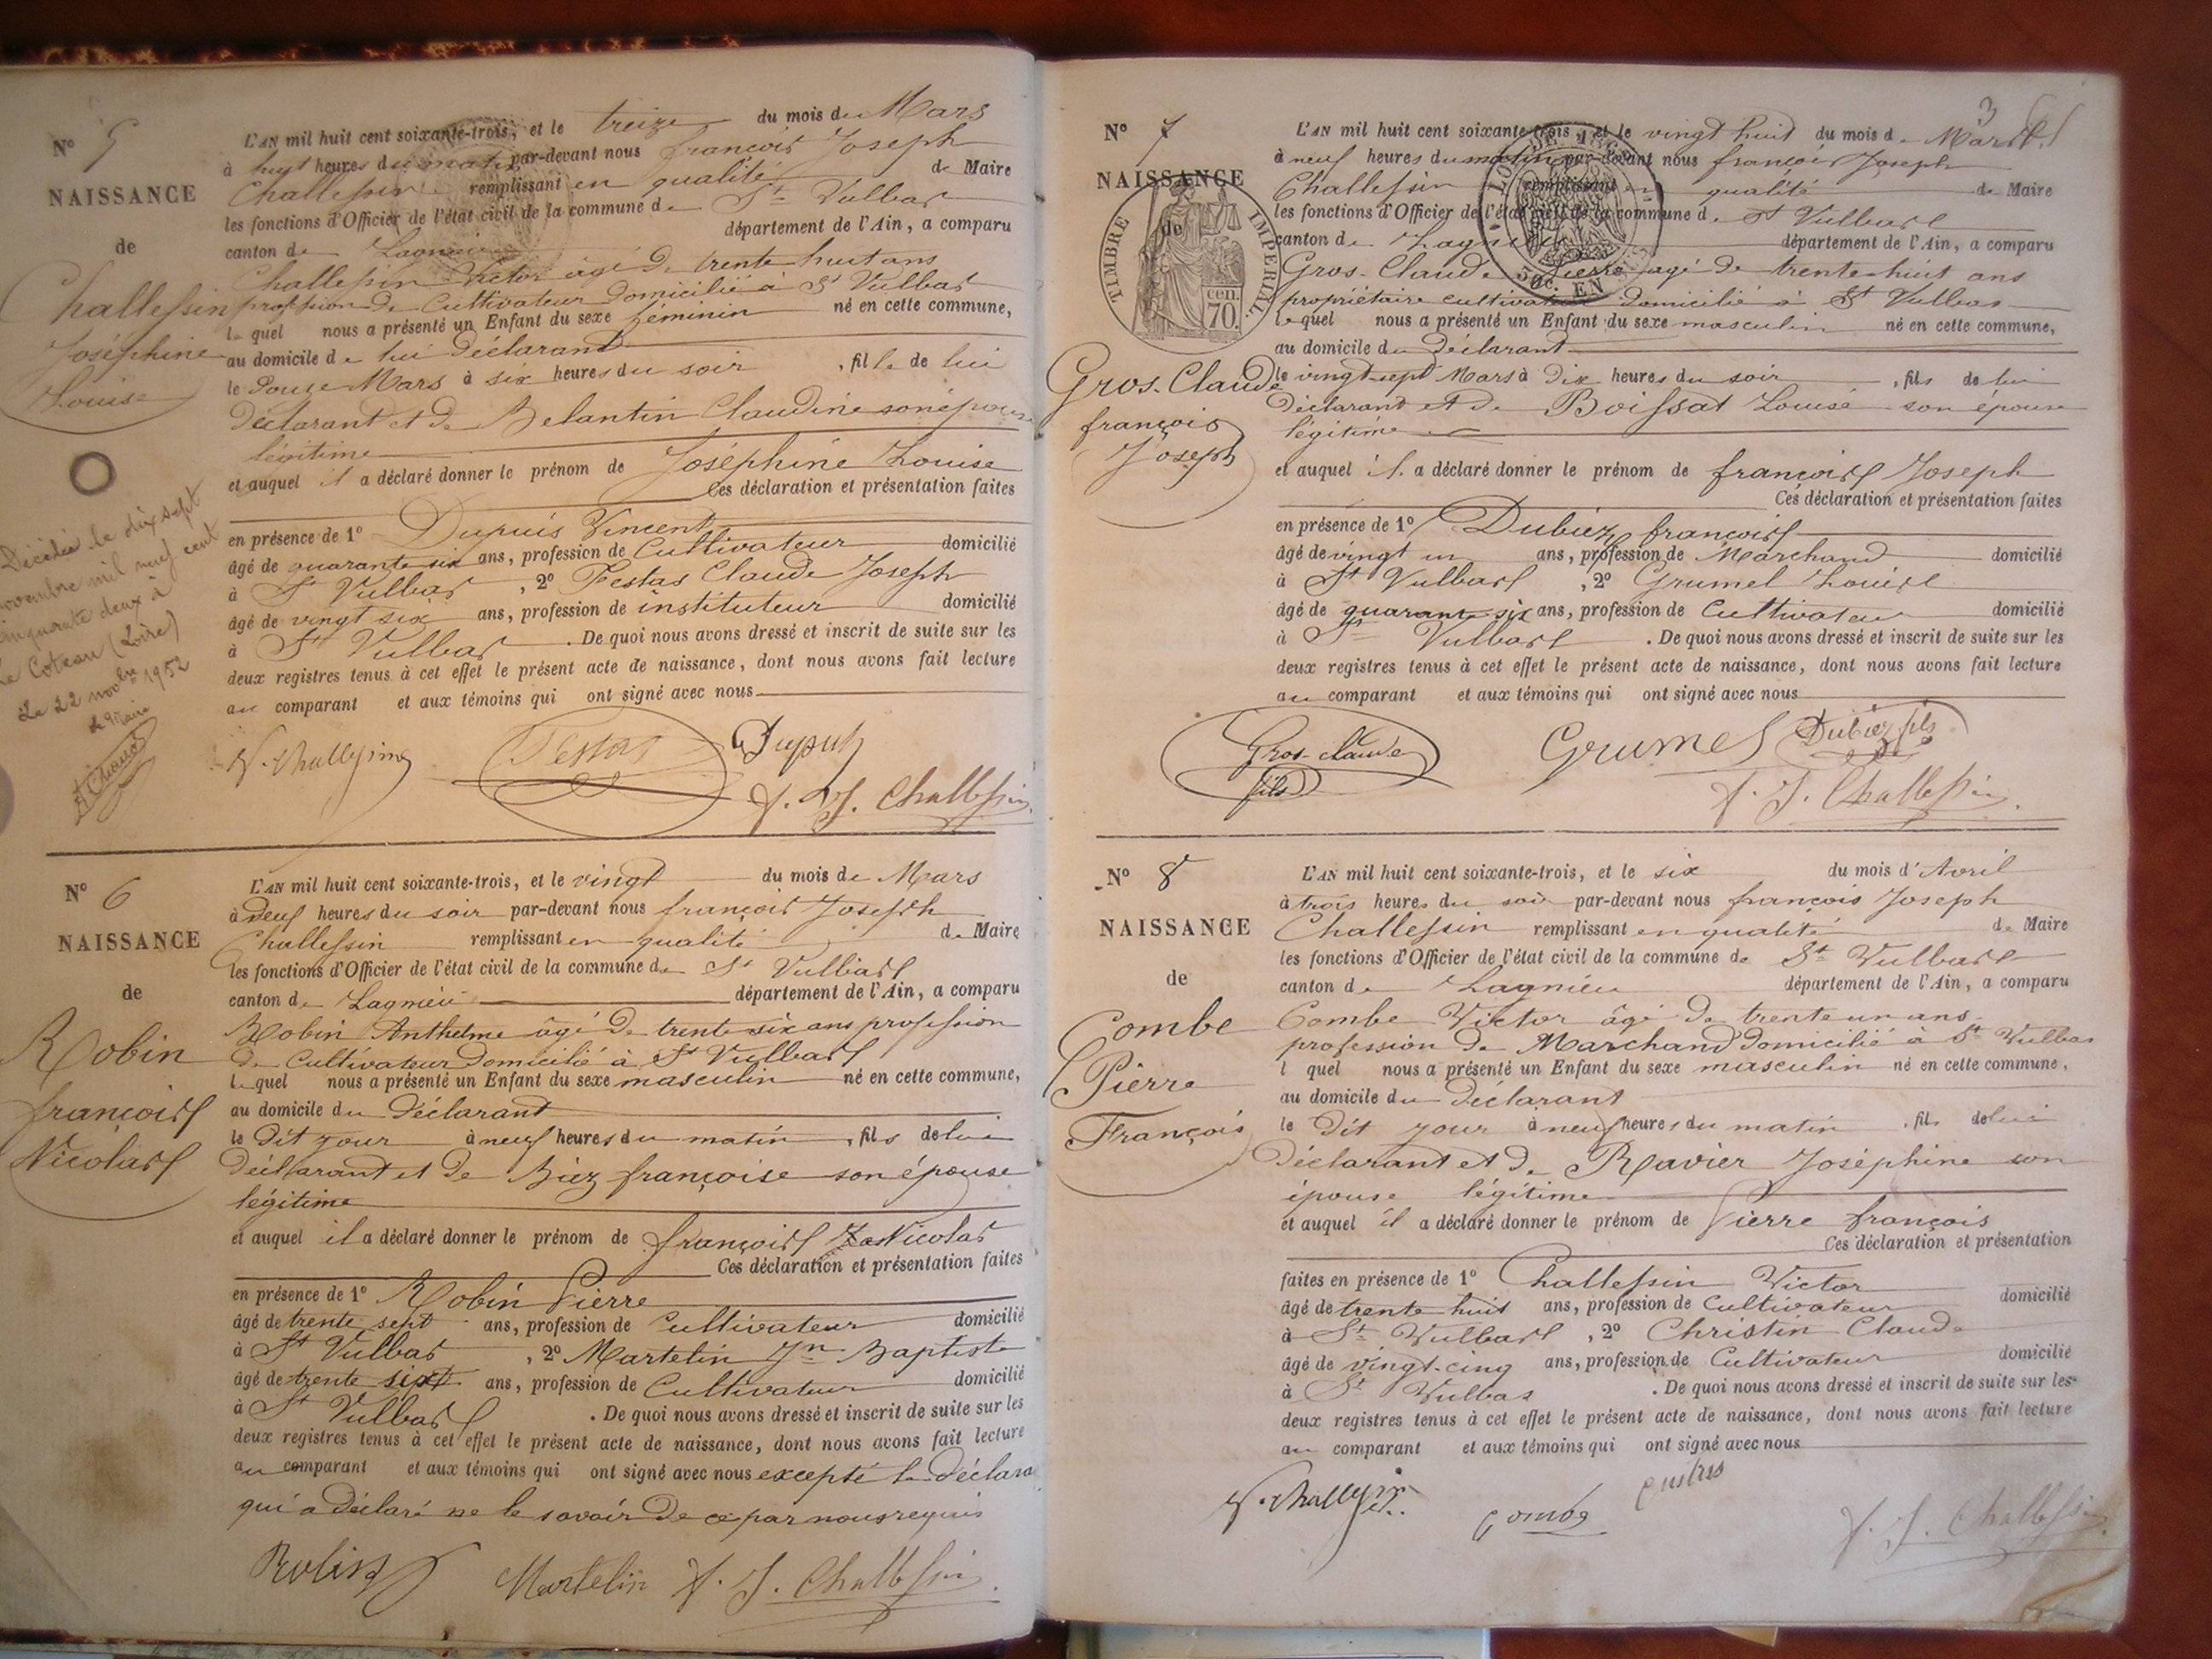 N° 5
NAISSANCE
de
Challessin
Joséphine
Louise
Décédée le dix sept
novembre mil neuf cent
cinquante deux à
Le Coteau (Loire)
Le 22 novbre 1952
Le Maire
L'AN mil huit cent soixante-trois, et le treize du mois de Mars
à huit heures du matin par-devant nous françois Joseph
Challessin remplissant en qualité de Maire
les fonctions d'Officier de l'état civil de la commune de St Vulbas
canton de Lagnieu département de l'Ain, a comparu
Challessin Victor âgé de trente huit ans
profession de Cultivateur domicilié à St Vulbas
lequel nous a présenté un Enfant du sexe feminin né en cette commune,
au domicile de lui déclarant
le douze Mars à six heures du soir, fille de lui
déclarant et de Belantin Claudine son épouse
légitime
et auquel il a déclaré donner le prénom de Joséphine Louise
Ces déclaration et présentation faites
en présence de 1° Dupuis Vincent
âgé de quarante six ans, profession de Cultivateur domicilié
à St Vulbas, 2° Festas Claude Joseph
âgé de vingt six ans, profession de instituteur domicilié
à St Vulbas. De quoi nous avons dressé et inscrit de suite sur les
deux registres tenus à cet effet le présent acte de naissance, dont nous avons fait lecture
au comparant et aux témoins qui ont signé avec nous
V. Challessin Festas Dupuis
f. J. Challessin
N° 6
NAISSANCE
de
Robin
françois
Nicolas
L'AN mil huit cent soixante-trois, et le vingt du mois de Mars
à neuf heures du soir par-devant nous françois Joseph
Challessin remplissant en qualité de Maire
les fonctions d'Officier de l'état civil de la commune de St Vulbas
canton de Lagnieu département de l'Ain, a comparu
Robin Anthelme âgé de trente six ans profession
de Cultivateur domicilié à St Vulbas
lequel nous a présenté un Enfant du sexe masculin né en cette commune,
au domicile du déclarant
le dit jour à neuf heures du matin, fils de lui
déclarant et de Biez françoise son épouse
légitime
et auquel il a déclaré donner le prénom de françois Nicolas
Ces déclaration et présentation faites
en présence de 1° Robin Pierre
âgé de trente sept ans, profession de Cultivateur domicilié
à St Vulbas, 2° Martelin Jn Baptiste
âgé de trente sept ans, profession de Cultivateur domicilié
à St Vulbas. De quoi nous avons dressé et inscrit de suite sur les
deux registres tenus à cet effet le présent acte de naissance, dont nous avons fait lecture
au comparant et aux témoins qui ont signé avec nous excepté le déclara
qui a déclaré ne le savoir de ce par nous requis
Robin Martelin f. J. Challessin
3
N° 7
NAISSANCE
de
TIMBRE IMPERIAL
70 cen.
Gros-Claude
françois
Joseph
L'AN mil huit cent soixante-trois, et le vingt huit du mois de Mars
à neuf heures du matin par-devant nous françois Joseph
Challessin remplissant en qualité de Maire
les fonctions d'Officier de l'état civil de la commune de St Vulbas
canton de Lagnieu département de l'Ain, a comparu
Gros-Claude Pierre agé de trente-huit ans
propriétaire cultivateur domicilié à St Vulbas
lequel nous a présenté un Enfant du sexe masculin né en cette commune,
au domicile du déclarant
le vingt sept Mars à dix heures du soir, fils de lui
déclarant et de Boissat Louise son épouse
légitime
et auquel il a déclaré donner le prénom de françois Joseph
Ces déclaration et présentation faites
en présence de 1° Dubiez françois
âgé de vingt un ans, profession de Marchand domicilié
à St Vulbas, 2° Grumel Louis
âgé de quarante six ans, profession de Cultivateur domicilié
à St Vulbas. De quoi nous avons dressé et inscrit de suite sur les
deux registres tenus à cet effet le présent acte de naissance, dont nous avons fait lecture
au comparant et aux témoins qui ont signé avec nous
Gros-claude fils Grumel Dubiez fils
f. J. Challessin
N° 8
NAISSANCE
de
Combe
Pierre
François
L'AN mil huit cent soixante-trois, et le six du mois d'Avril
à trois heures du soir par-devant nous françois Joseph
Challessin remplissant en qualité de Maire
les fonctions d'Officier de l'état civil de la commune de St Vulbas
canton de Lagnieu département de l'Ain, a comparu
Combe Victor âgé de trente un ans
profession de Marchand domicilié à St Vulbas
l quel nous a présenté un Enfant du sexe masculin né en cette commune,
au domicile du déclarant
le dit jour à neuf heures du matin, fils de lui
déclarant et de Ravier Joséphine son
épouse légitime
et auquel il a déclaré donner le prénom de Pierre françois
Ces déclaration et présentation
faites en présence de 1° Challessin Victor
âgé de trente huit ans, profession de Cultivateur domicilié
à St Vulbas, 2° Christin Claude
âgé de vingt-cinq ans, profession de Cultivateur domicilié
à St Vulbas. De quoi nous avons dressé et inscrit de suite sur les
deux registres tenus à cet effet le présent acte de naissance, dont nous avons fait lecture
au comparant et aux témoins qui ont signé avec nous
V. Challessin Combe
f. J. Challessin